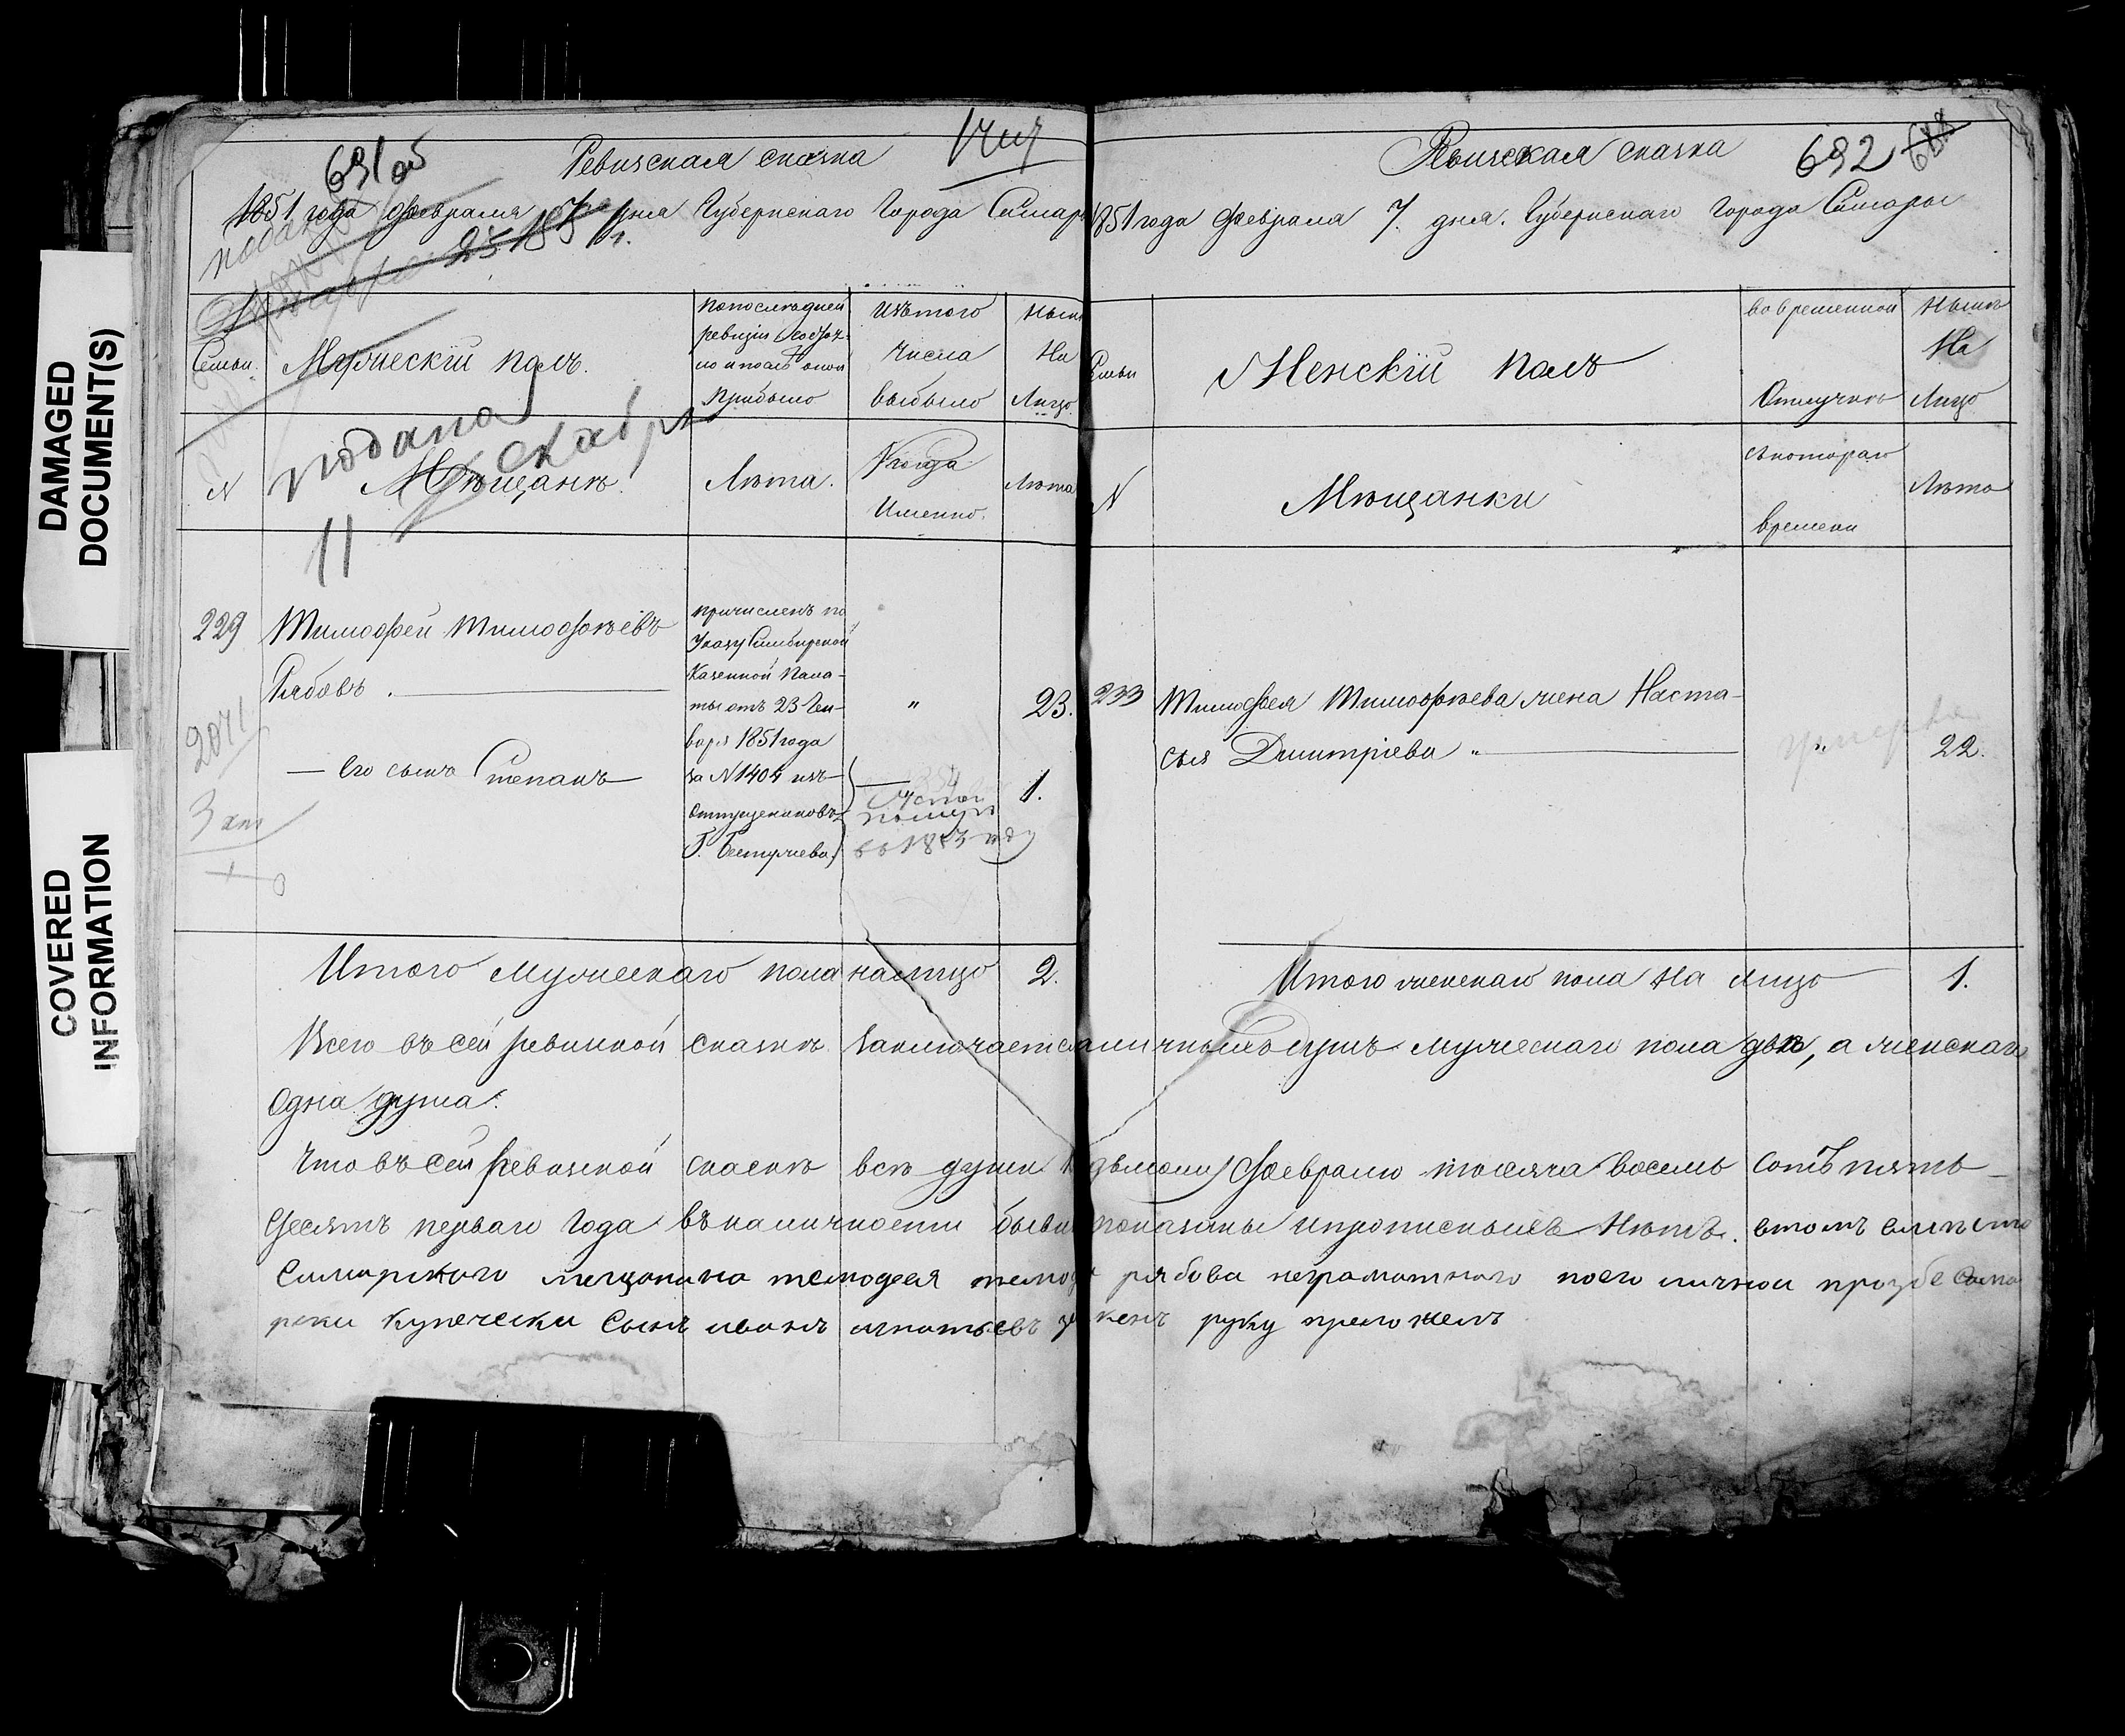 DAMAGED
DOCUMENT(S)
COVERED
INFORMATION
691 об
Ревизская сказка
1851 года февраля 7 дня Губернскаго Города Самары
25
Семьи
Мужескій полъ.
По последней
ревизіи состоя-
ло и после оной
прибыло
Изъ того
числа
выбыло
Ныне
На
Лицо
подана
N
Мѣщане.
Лѣта.
Когда
Именно.
Лѣта
11
229
Тимофей Тимофѣевъ
Рябовъ.
— Его сынъ Степанъ
причисленъ по
Указу Симбирской
Казенной Пала-
ты отъ 23 Ген-
варя 1851 года
за N 1404 изъ
отпущенниковъ
Г. Бестужева
"
23.
1.
2071
Итого мужескаго пола налицо 2.
692
Ревизская сказка
1851 года Февраля 7. дня. Губернскаго Города Самары
Семьи
Женскій полъ
во временной
Отлучке
Ныне
На
Лицо
N
Мѣщанки
съкотораго
времени
Лѣта
233
Тимофея Тимофѣева жена Наста-
сья Дмитріева "
"
22.
Итого женскаго пола на лицо 1.
Всего въ сей ревизской сказке заключается наличныхъ душъ мужескаго пола две, а женскаго
Одна душа.
Что въ сей ревизской сказке все души Февралю тысяча восемь сотъ пять-
десятъ перваго Года въ наличности бывши показаны и прописныхъ нетъ. втомъ вместо
Самарскаго мещанина темофея рябова неграмотнаго поего личной прозбе Сама
рски Купечески Сынъ иванъ игнатьевъ руку преложелъ